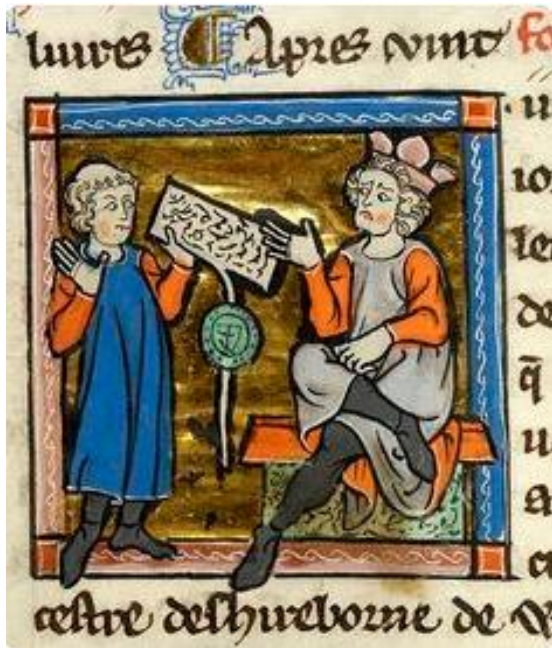 liures Apres vint fo
u
io
le
de
q̄
u
cestre deshireborne de